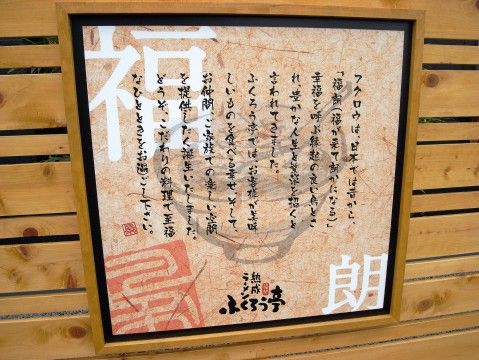 福
フクロウは、日本では昔から、
「福朗・福が来て朗かになる」
幸福を呼ぶ縁起の良い鳥とさ
れ、豊かな人生と先栄を招くと
言われてきました。
ふくろう亭では、お客様が美味
しいものを食べる幸せ、そして、
お仲間、ご家族での楽しい空間
を提供したく誕生いたしました。
どうぞ、こだわりの料理で至福
なひとときをお過ごし下さい。
熟成
ラーメン
ふくろう亭
朗